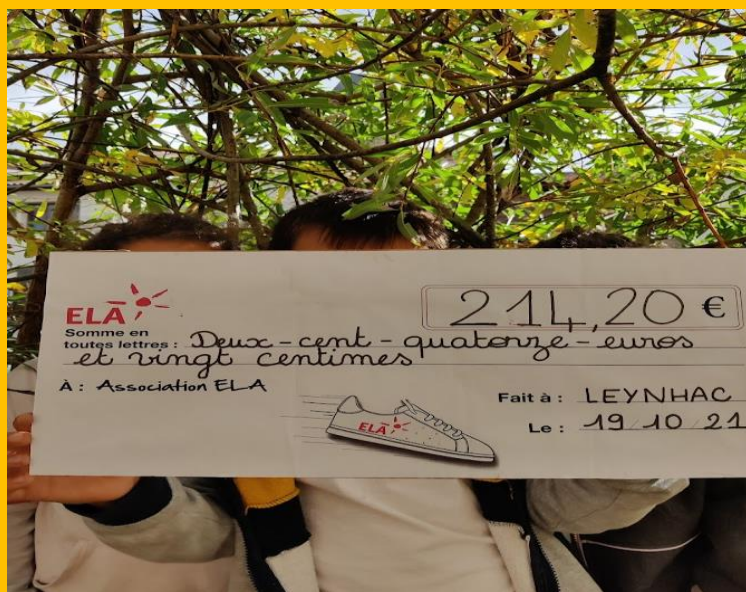 ELA
214,20 €
Somme en
toutes lettres : Deux-cent-quatorze-euros
et vingt centimes
À : Association ELA
Fait à : LEYNHAC
Le : 19/10/21
ELA